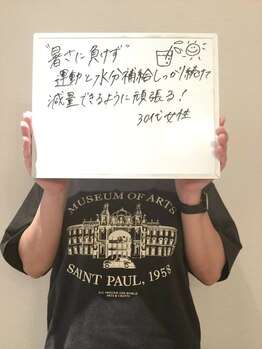 "暑さに負けず"
運動と水分補給しっかり続けて
減量できるように頑張る!
30代女性
MUSEUM OF ARTS
SAINT PAUL, 1958
ALL AROUND THE WORLD
ARTS & CRAFTS